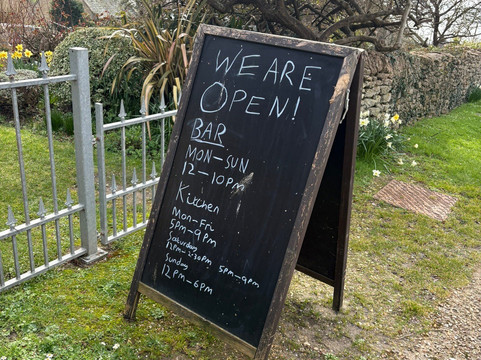 WE ARE
OPEN!
BAR
MON-SUN
12-10PM
Kitchen
Mon-Fri
5pm-9pm
Saturday
12pm-2:30pm 5pm-9pm
Sunday
12pm-6pm